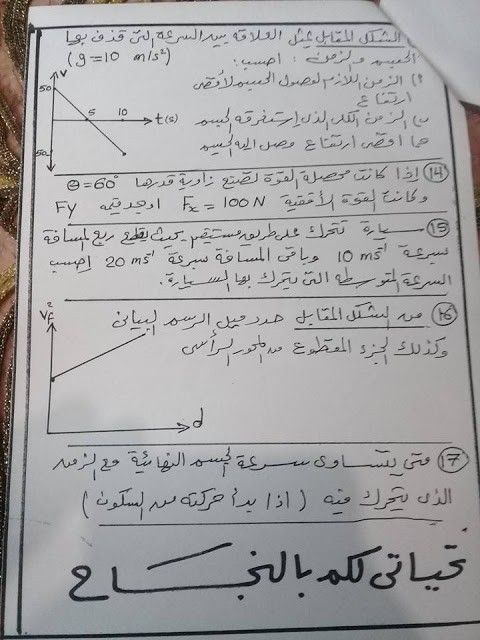 الشكل المقابل يمثل العلاقة بين السرعة التى قذف بها
الجسم والزمن : احسب : (g=10 m/s²)
أ) الزمن اللازم لوصول الجسم لأقصى
ارتفاع
ب) الزمن الكلى الذى استغرقه الجسم
جـ) أقصى ارتفاع وصل اليه الجسم
V
50
5
10
t(s)
50
(14) إذا كانت محصلة القوة تصنع زاوية قدرها θ=60°
وكانت القوة الأفقية Fx = 100N اوجد قيمه Fy
(15) سيارة تتحرك على طريق مستقيم بحيث تقطع ربع المسافة
بسرعة 10 ms⁻¹ وباقى المسافة بسرعة 20 ms⁻¹ احسب
السرعة المتوسطه التى يتحرك بها السيارة.
(16) من الشكل المقابل حدد ميل الرسم البيانى
وكذلك الجزء المقطوع من المحور الرأسى
Vf²
d
(17) متى يتساوى سرعة الجسم النهائية مع الزمن
الذى يتحرك فيه ( اذا بدأ حركته من السكون )
تحياتى لكم بالنجاح